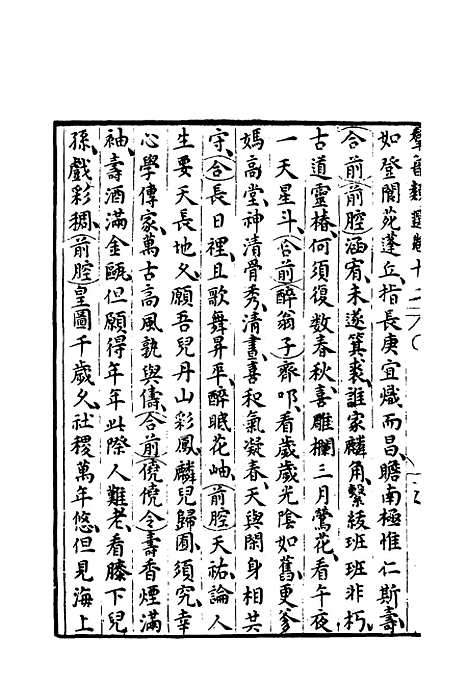 羣音類選卷十二
如登閬苑蓬丘指長庚宜熾而昌瞻南極惟仁斯壽
合前前腔涵宥未遂箕裘誰家麟角繫綾班班非朽
古道靈椿何須復數春秋喜雕欄三月鶯花看午夜
一天星斗合前醉翁子齊叩看歲歲光陰如舊更爹
媽高堂神清骨秀清晝喜和氣凝春天與閑身相共
守合長日裡且歌舞昇平醉眠花岫前腔天祐論人
生要天長地久願吾兒丹山彩鳳麟兒歸囿須究幸
心學傳家萬古高風孰與儔合前僥僥令壽香煙滿
袖壽酒滿金甌但願得年年此際人難老看膝下兒
孫戲彩裯前腔皇圖千歲久社稷萬年悠但見海上